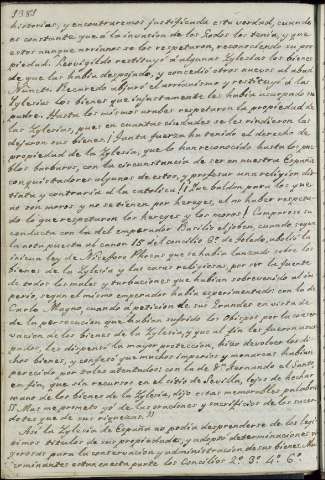 1381
historias, y encontraremos justificada esta verdad, cuando
es constante que á la invasion de los Godos los tenia, y que
estos aunque arrianos se los respetaron, reconociendo su pro
piedad. Leovigildo restituyó á algunas Iglesias los bienes
de que las habia despojado, y concedió otros nuevos al abad
Nuncto. Recaredo abjuró el arrianismo y restituyó á las
Iglesias los bienes que injustamente les habia usurpado su
padre. Hasta los mismos arabes respetaron la propiedad de
las Iglesias, pues en cuantas ciudades se les rindieron las
dejaron sus bienes. ¡Tanta fuerza ha tenido el derecho de
propiedad de la Iglesia, que lo han reconocido hasta los pue
blos barbaros, con la circunstancia de ser en nuestra España
conquistadores algunos de estos, y profesar una religion dis
tinta y contraria á la catolica! ¡Que baldon para los que
no son moros y no se tienen por hereges, el no haber respeta
do lo que respetaron los hereges y los moros! Comparese su
conducta con la del emperador Basilio el joben, cuando segun
la nota puesta al canon 15 del concilio 3º de Toledo, abolió la
inicua ley de Niceforo Phocas que se habia lanzado sobre los
bienes de la Iglesia y las casas religiosas, por ser la fuente
de todos los males y turbaciones que habian sobrevenido al im
perio, segun el mismo emperador habia esperimentado: con la de
Carlo Magno, cuando á peticion de sus Grandes en vista de
la persecucion que habian sufrido los Obispos por la conser
vacion de los bienes de la Iglesia, y que al fin les fueron usur
pados, les dispensó la mayor proteccion, hizo devolver los di
chos bienes, y confesó que muchos imperios y monarcas habian
perecido por tales atentados: con la de Sn. Fernando el Santo
en fin, que sin recursos en el sitio de Sevilla, lejos de hechar
mano de los bienes de la Iglesia, dijo estas memorables palabras
"Mas me prometo yo de las oraciones y sacrificios de los sacer
dotes que de sus riquezas."
Asi la Iglesia de España no podia desprenderse de los legi
timos titulos de sus propiedades, y adoptó determinaciones vi
gorosas para la conservacion y administracion de sus bienes. Mas
terminantes estan en esta parte los Concilios 2º 3º 4º 6º